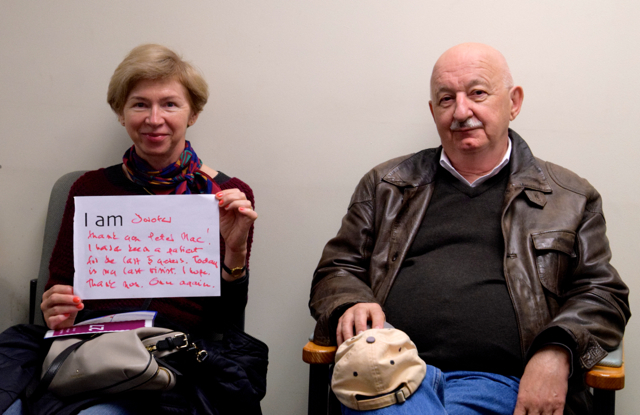 I am
thank you Peter Mac!
I have been a patient
for the last 5 years. Today
is my last visit. I hope.
Thank you. Once again.